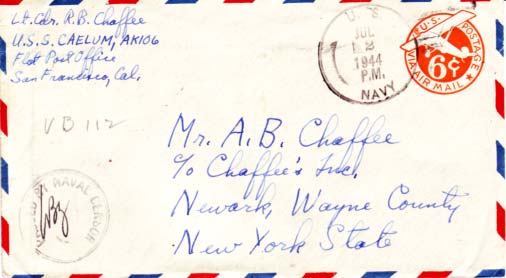 Lt. Cdr. R.B. Chaffee
U.S.S. CAELUM, AK106
Fleet Post Office
San Francisco, Cal.
U.S.
JUL
1944
P.M.
NAVY
U.S. POSTAGE
6¢
VIA AIR MAIL
VB 112
Mr. A.B. Chaffee
c/o Chaffee's Inc.
Newark, Wayne County
New York State
BY NAVAL CENSOR